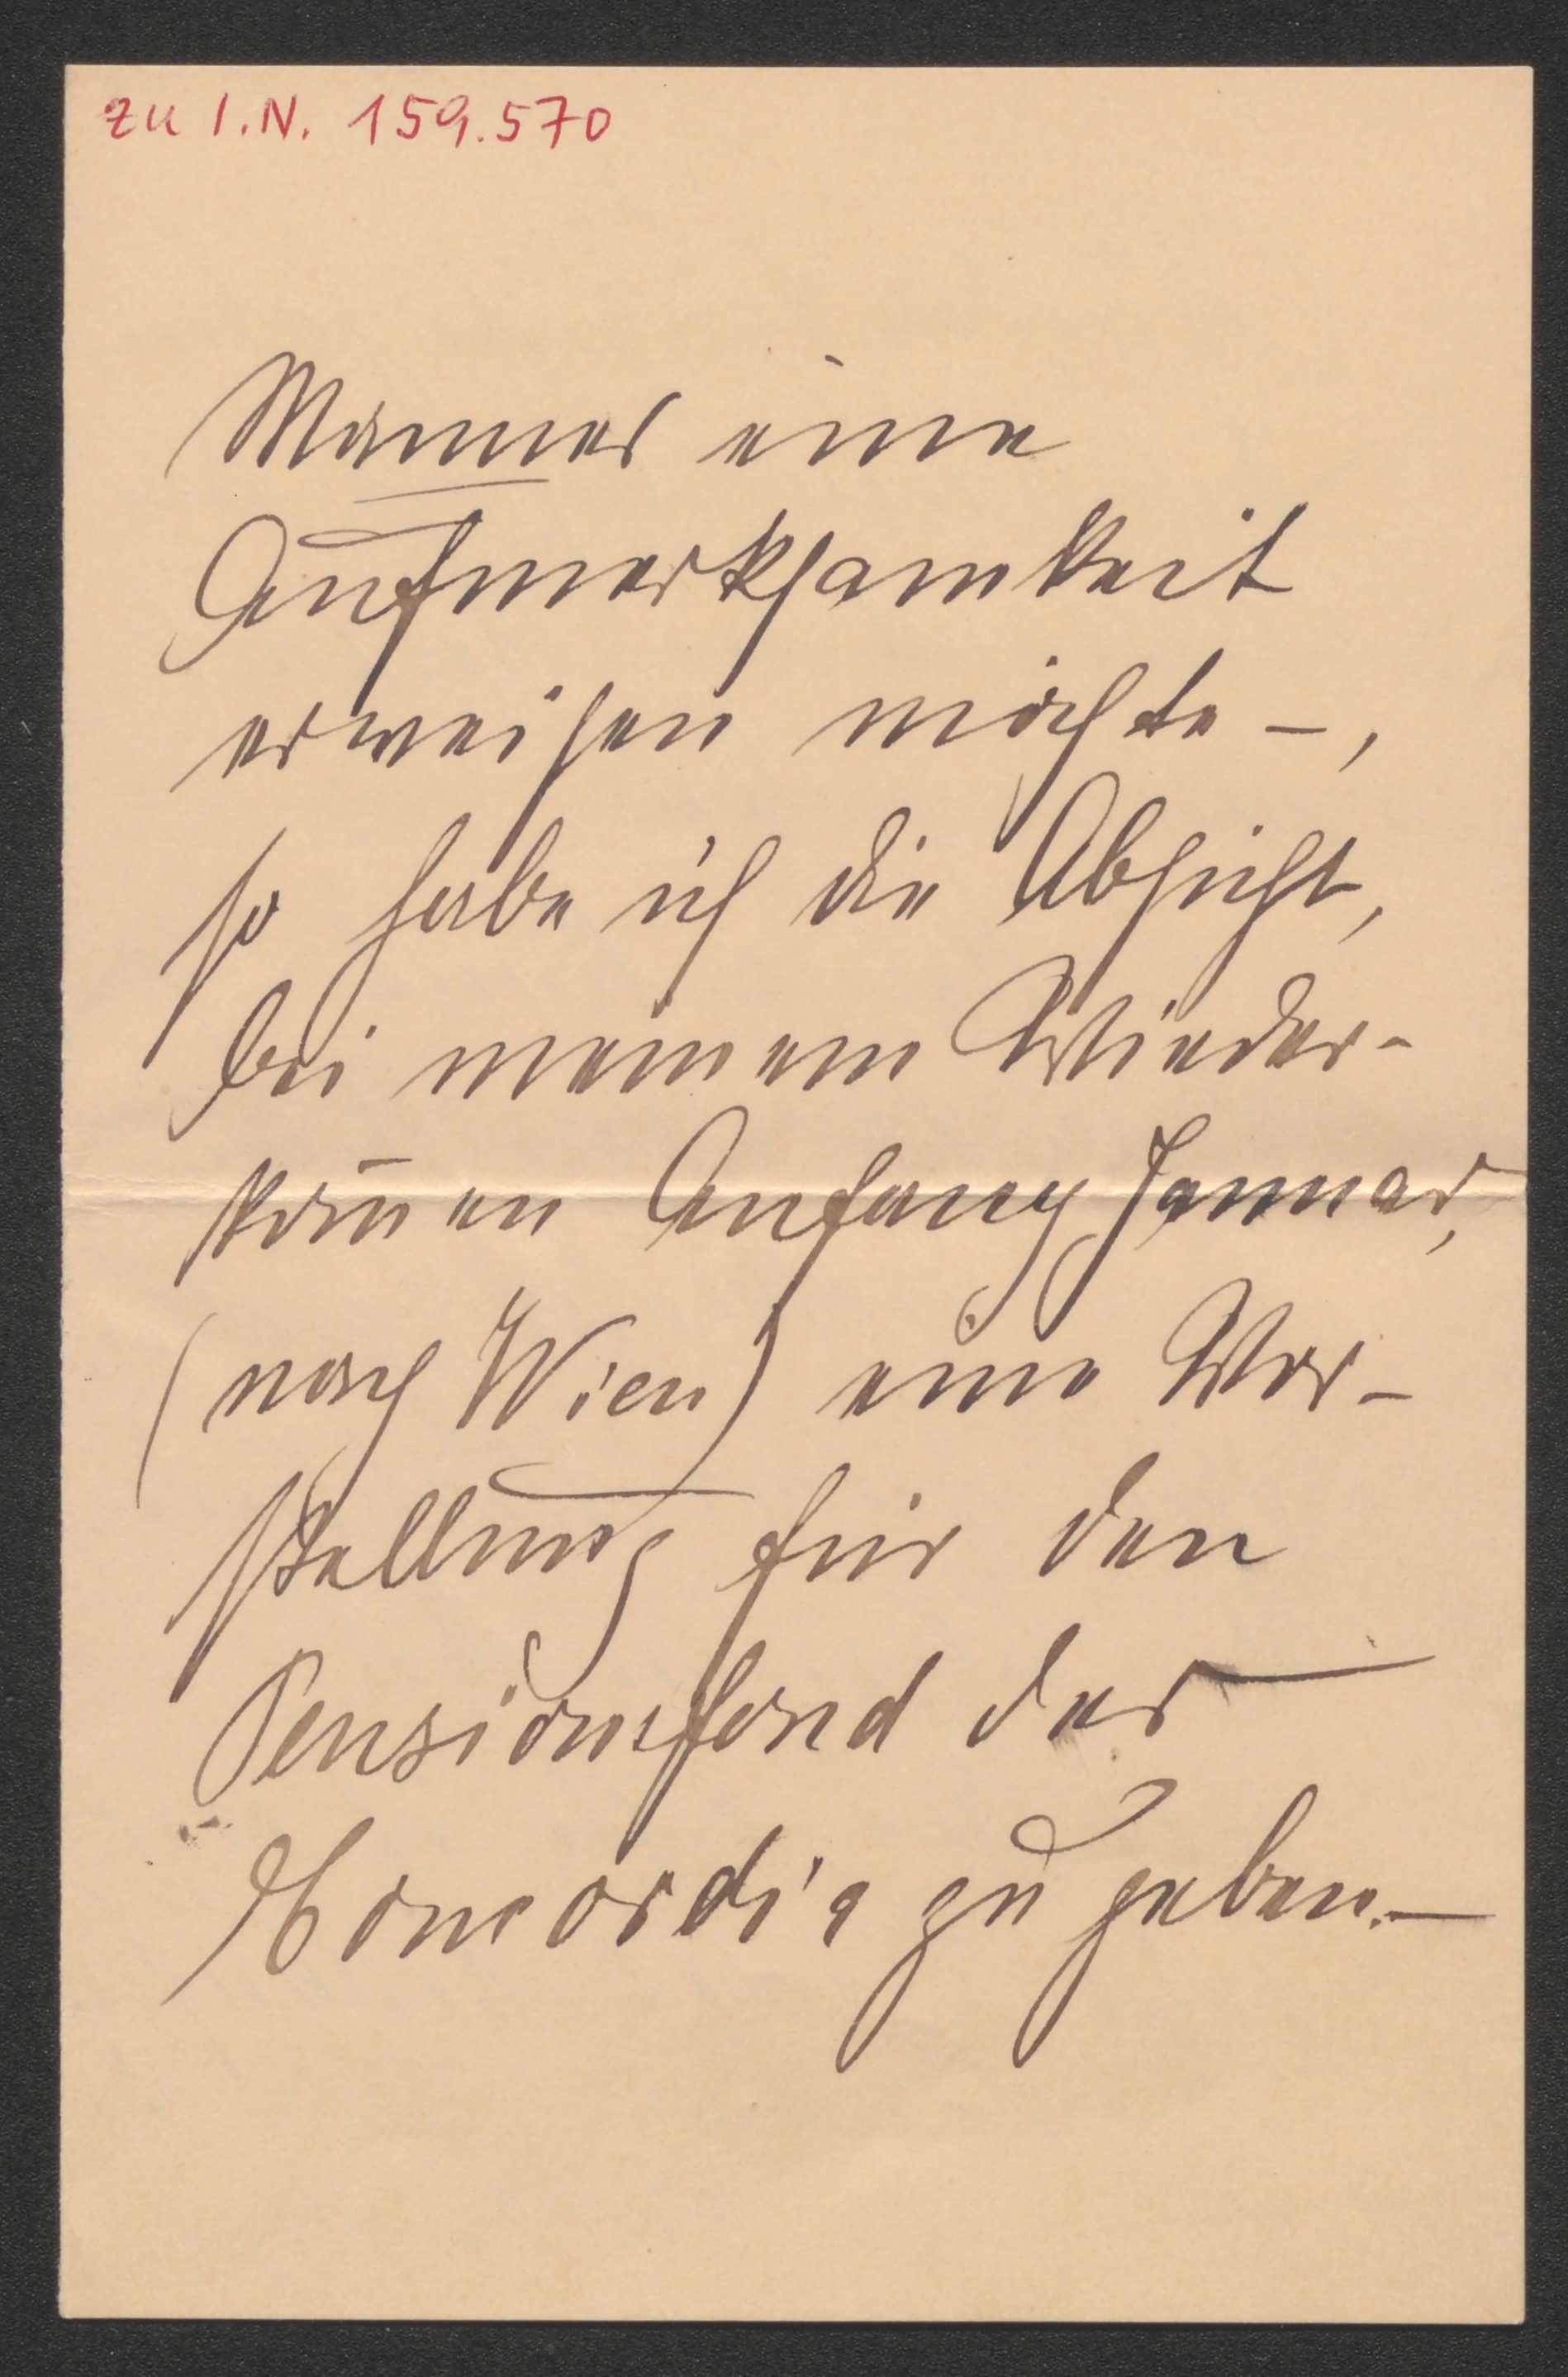 zu I.N. 159.570
Mannes eine
Aufmerksamkeit
erweisen möchte –,
so habe ich die Absicht,
bei meinem Wieder-
kom̄en Anfang Januar,
(nach Wien) eine Vor-
stellung für den
Pensionsfond der
Concordia zu geben.–